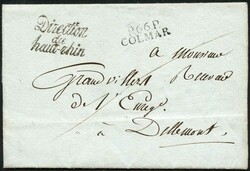 Direction
du
haut-rhin
P.66.P.
COLMAR
a Monsieur
Grandvillers Receveur
de l'Enreg.
à Dellemont.